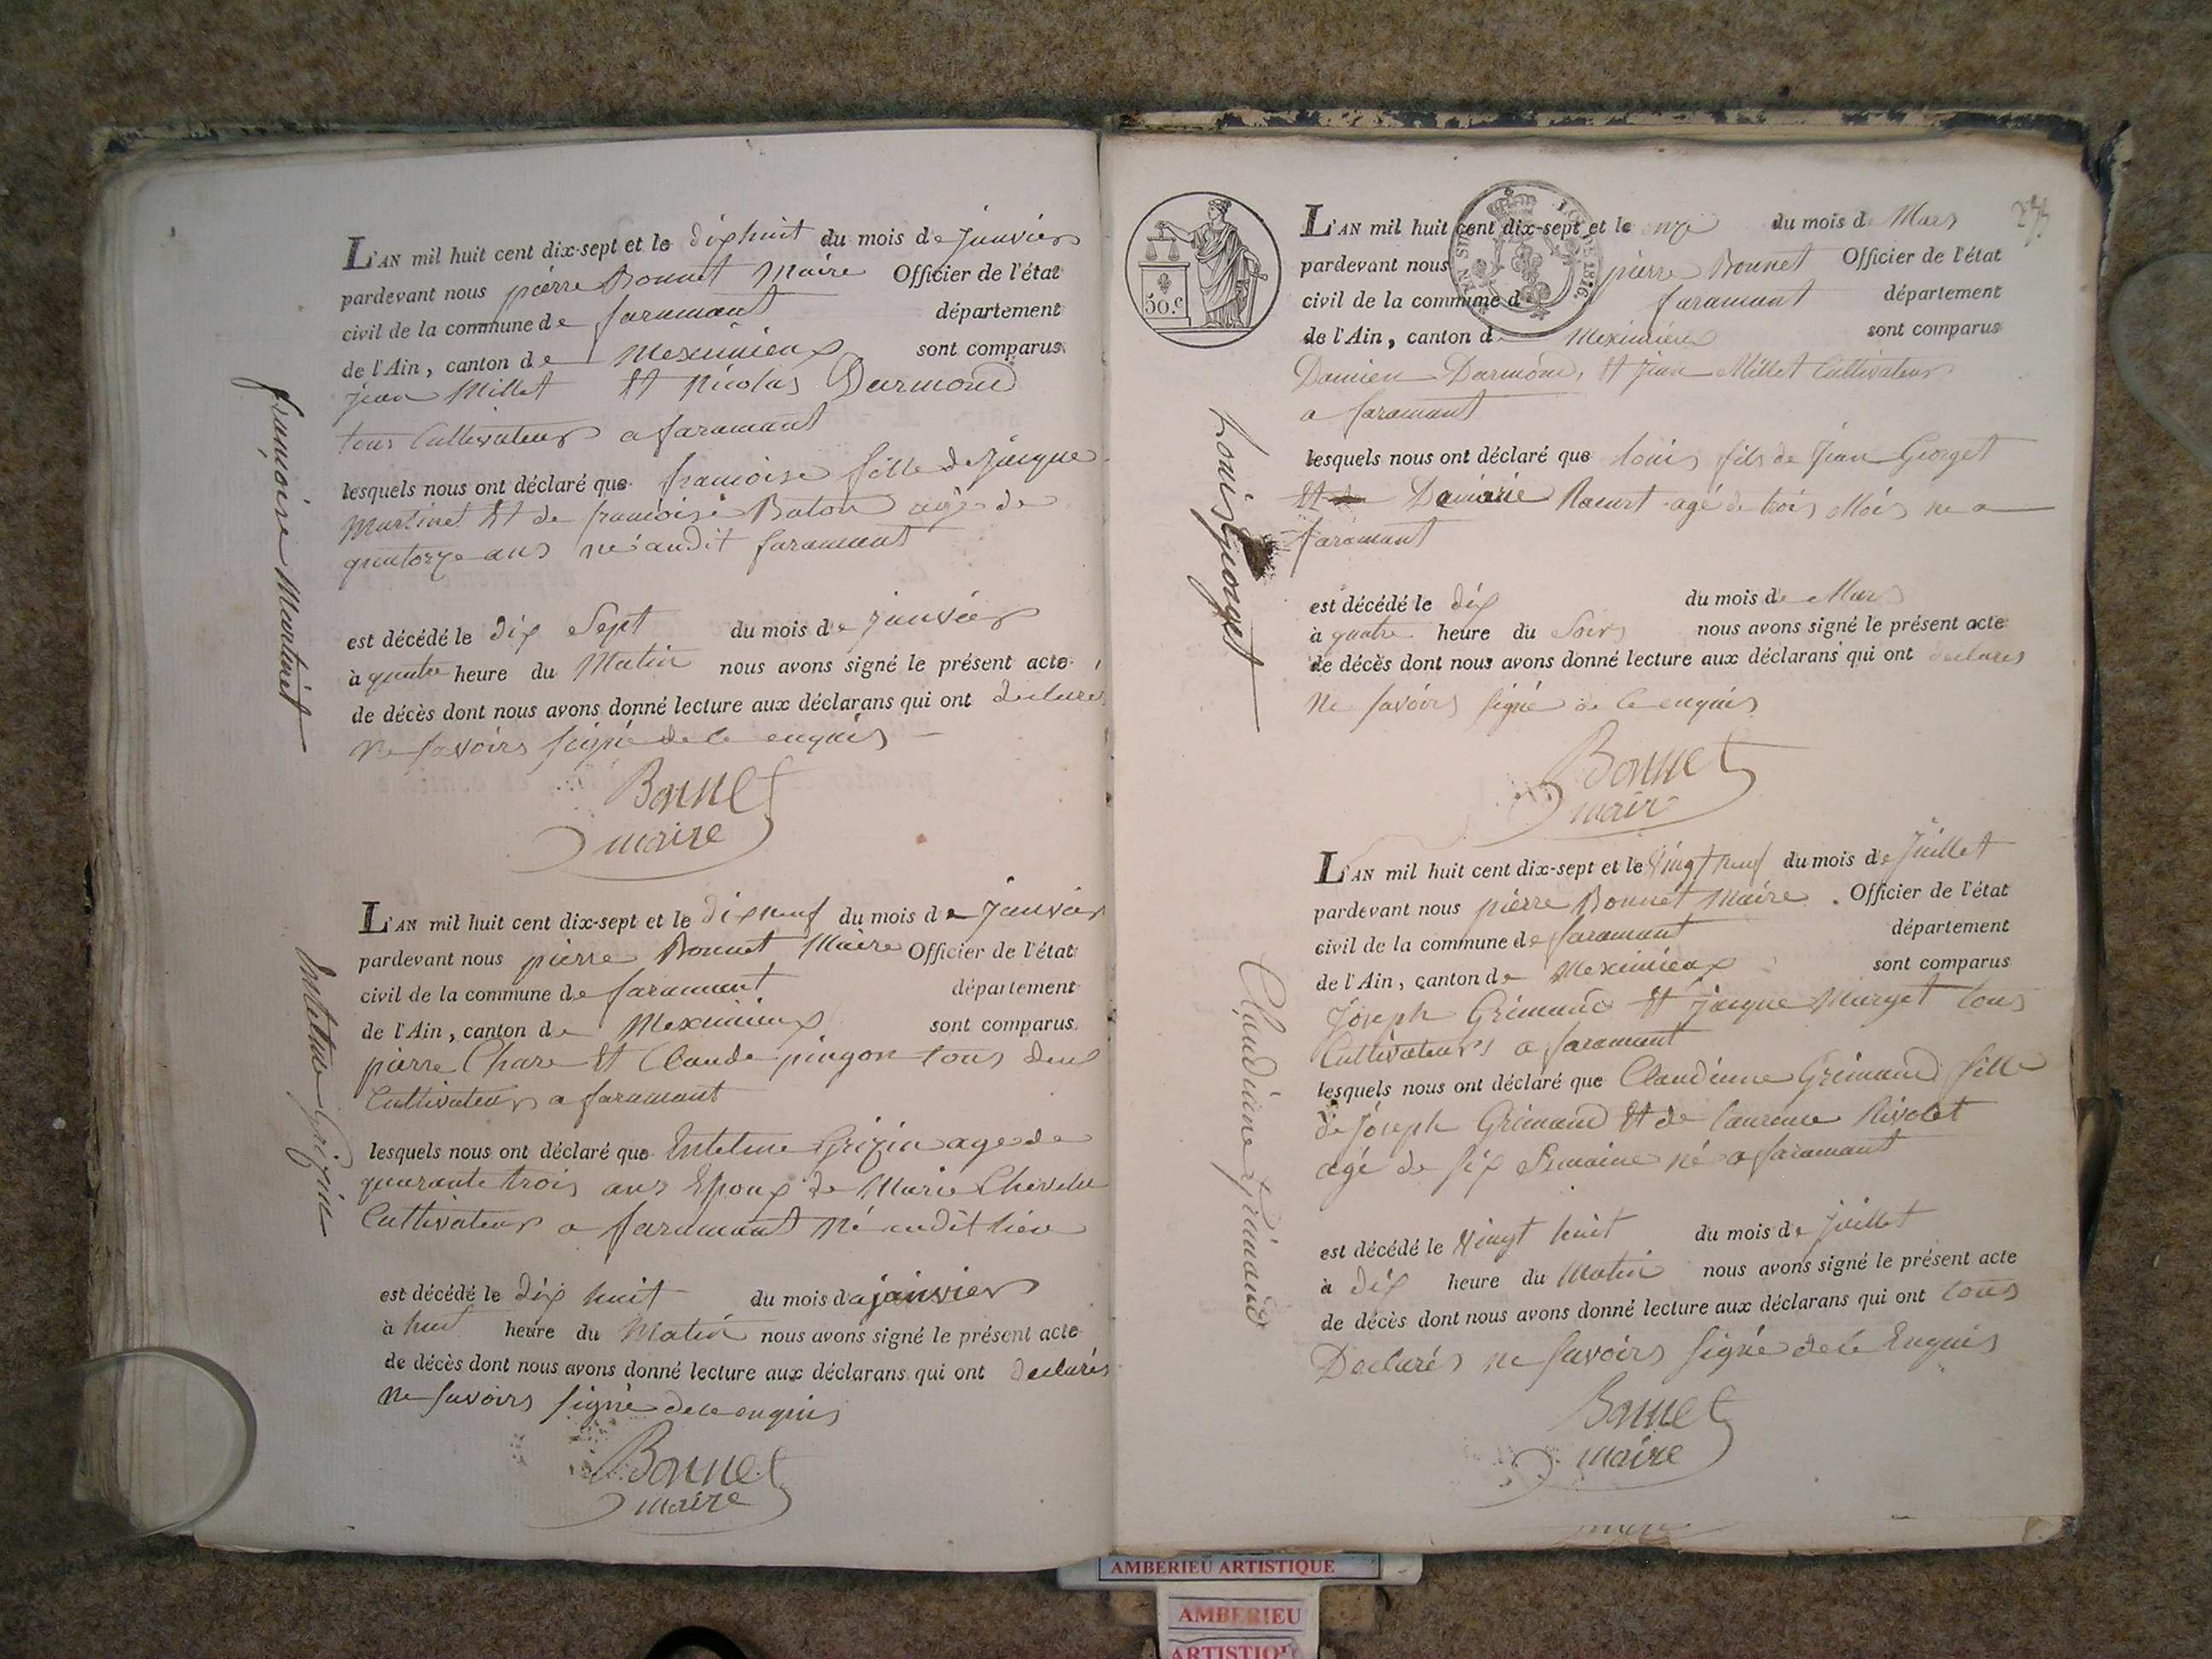 L'AN mil huit cent dix-sept et le dixhuit du mois de janvier
pardevant nous pierre Bonnet Maire Officier de l'état
civil de la commune de faramant département
de l'Ain, canton de Meximieux sont comparus
jean Millet Et Nicolas Darmond
tous Cultivateur a faramant
lesquels nous ont déclaré que francoise fille de jacque
Martinet Et de francoise Baton agé de
quatorze ans né audit faramant
est décédé le dix Sept du mois de janvier
à quatre heure du Matin nous avons signé le présent acte
de décès dont nous avons donné lecture aux déclarans qui ont declarés
ne savoirs signé de ce enquis
Bonnet
maire
francoise Martinet
L'AN mil huit cent dix-sept et le dixneuf du mois de janvier
pardevant nous pierre Bonnet Maire Officier de l'état
civil de la commune de faramant département
de l'Ain, canton de Meximieux sont comparus
pierre Chare Et Claude pingon tous deux
Cultivateur a faramant
lesquels nous ont déclaré que Grizin age de
quarante trois ans Epoux de Marie Chevelu
Cultivateur a faramant Né audit lieu
est décédé le dix huit du mois de janvier
à huit heure du Matin nous avons signé le présent acte
de décès dont nous avons donné lecture aux déclarans qui ont declarés
ne savoirs signé de ce enquis
Bonnet
maire
Grizin
50.c
LOI DE 1816.
L'AN mil huit cent dix-sept et le onze du mois de Mars
pardevant nous pierre Bonnet Officier de l'état
civil de la commune d faramant département
de l'Ain, canton d Meximieux sont comparus
Damien Darmond, Et jean Millet Cultivateur
a faramant
lesquels nous ont déclaré que louis fils de jean Georget
Et agé de trois Mois ne a
faramant
est décédé le dix du mois de Mars
à quatre heure du Soirs nous avons signé le présent acte
de décès dont nous avons donné lecture aux déclarans qui ont declares
ne savoirs signé de ce enquis
Bonnet
mair
Louis Georget
L'AN mil huit cent dix-sept et le Vingt neuf du mois de Juillet
pardevant nous pierre Bonnet Maire Officier de l'état
civil de la commune de faramant département
de l'Ain, canton de Meximieux sont comparus
Joseph Grimand Et jacque Murget tous
Cultivateurs a faramant
lesquels nous ont déclaré que Claudinne Grimand fille
de Joseph Grimand Et de laurence Rivolet
agé de six Semaine né a faramant
est décédé le Vingt huit du mois de juillet
à dix heure du Matin nous avons signé le présent acte
de décès dont nous avons donné lecture aux déclarans qui ont tous
Declarés ne savoirs signé de ce Enquis
Bonnet
maire
Claudinne Grimand
AMBERIEU ARTISTIQUE
AMBERIEU